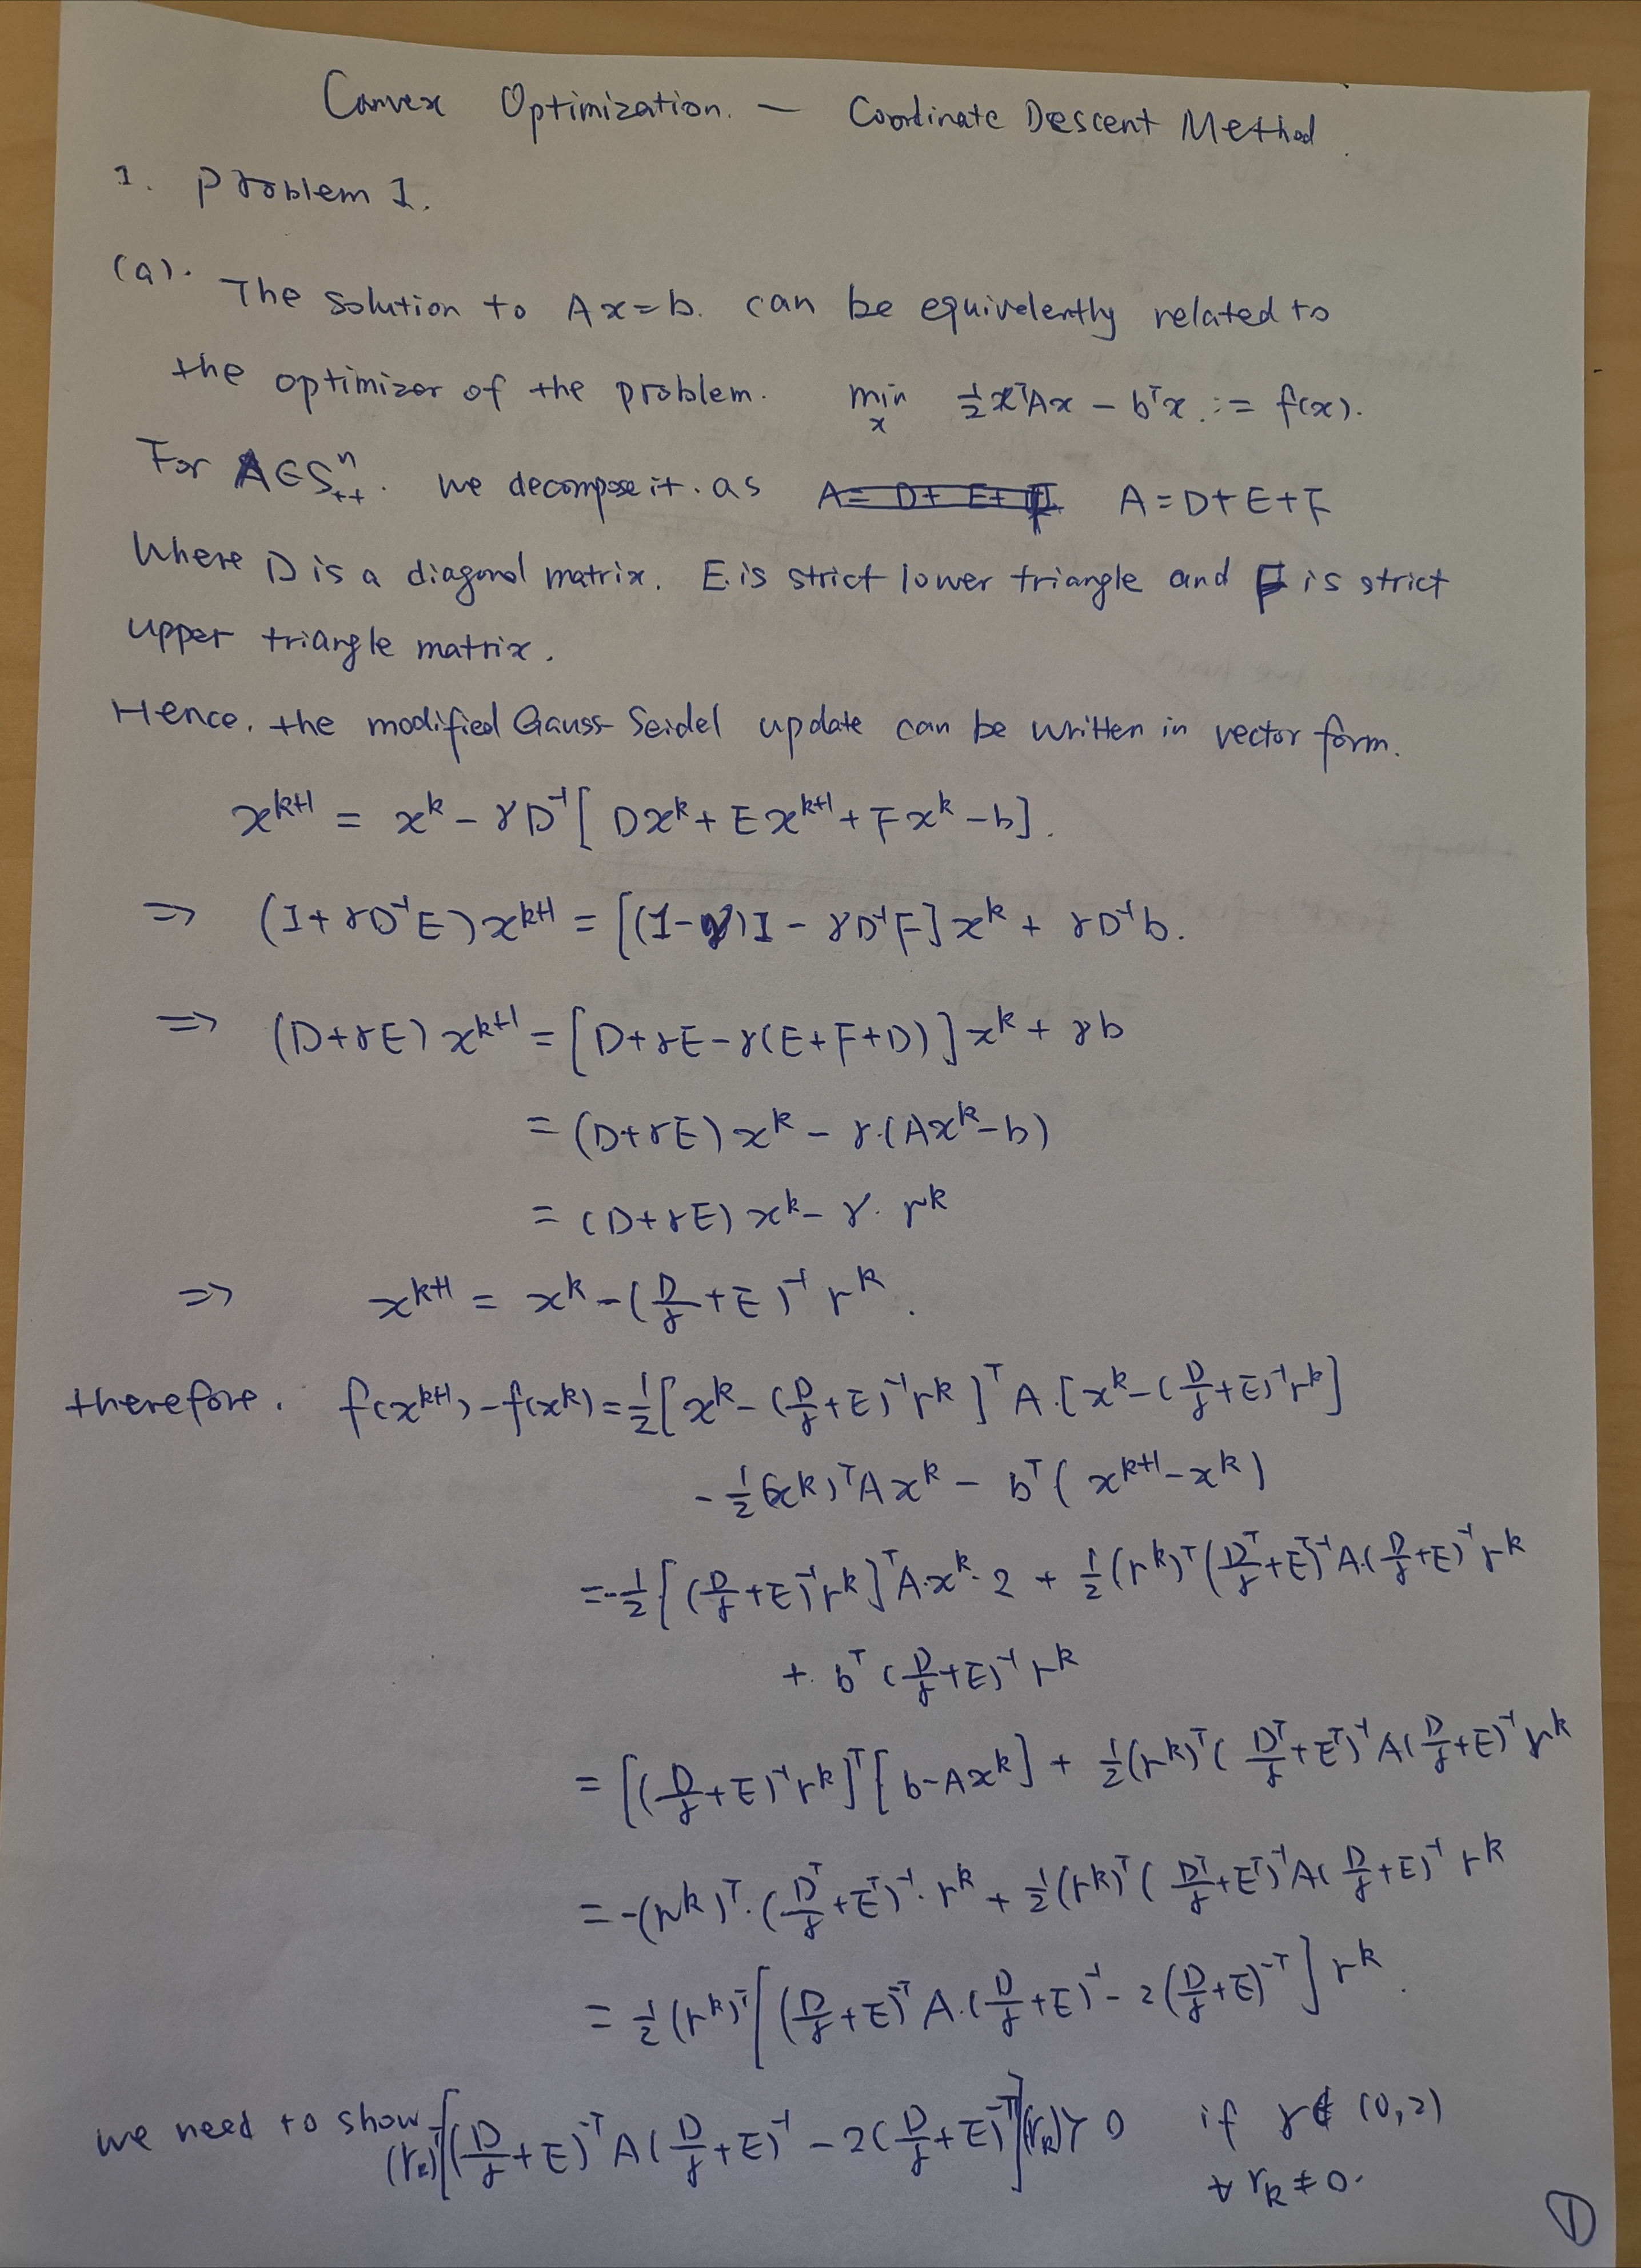 Convex Optimization. — Coordinate Descent Method.
1. Problem 1.
(a). The solution to Ax=b. can be equivelently related to
the optimizer of the problem. min_x ½x^T Ax − b^T x := f(x).
For A∈S^n_{++}. we decompose it. as A= D+ E+ F A=D+E+F
Where D is a diagonal matrix. E is strict lower triangle and F is strict
upper triangle matrix.
Hence. the modified Gauss-Seidel update can be written in vector form.
x^{k+1} = x^k − γD^{-1}[ Dx^k + Ex^{k+1} + Fx^k − b].
⇒ (I+γD^{-1}E)x^{k+1} = [(1−γ)I − γD^{-1}F]x^k + γD^{-1}b.
⇒ (D+γE) x^{k+1} = [D+γE−γ(E+F+D)]x^k + γb
= (D+γE)x^k − γ·(Ax^k−b)
= (D+γE) x^k − γ· r^k
⇒ x^{k+1} = x^k − (D/γ+E)^{-1} r^k.
therefore. f(x^{k+1})−f(x^k) = ½[x^k − (D/γ+E)^{-1}r^k]^T A·[x^k−(D/γ+E)^{-1}r^k]
−½(x^k)^T Ax^k − b^T(x^{k+1}−x^k)
= −½[(D/γ+E)^{-1}r^k]^T A·x^k·2 + ½(r^k)^T(D^T/γ+E^T)^{-1}A·(D/γ+E)^{-1}r^k
+ b^T(D/γ+E)^{-1}r^k
= [(D/γ+E)^{-1}r^k]^T[b−Ax^k] + ½(r^k)^T(D^T/γ+E^T)^{-1}A(D/γ+E)^{-1}r^k
= −(r^k)^T·(D^T/γ+E^T)^{-1}·r^k + ½(r^k)^T(D^T/γ+E^T)^{-1}A(D/γ+E)^{-1}r^k
= ½(r^k)^T[(D/γ+E)^{-T}A·(D/γ+E)^{-1} − 2(D/γ+E)^{-T}]r^k.
we need to show (r_k)^T[(D/γ+E)^{-T}A(D/γ+E)^{-1} − 2(D/γ+E)^{-T}](r_k)>0 if γ∉(0,2)
∀ r_k≠0.
①